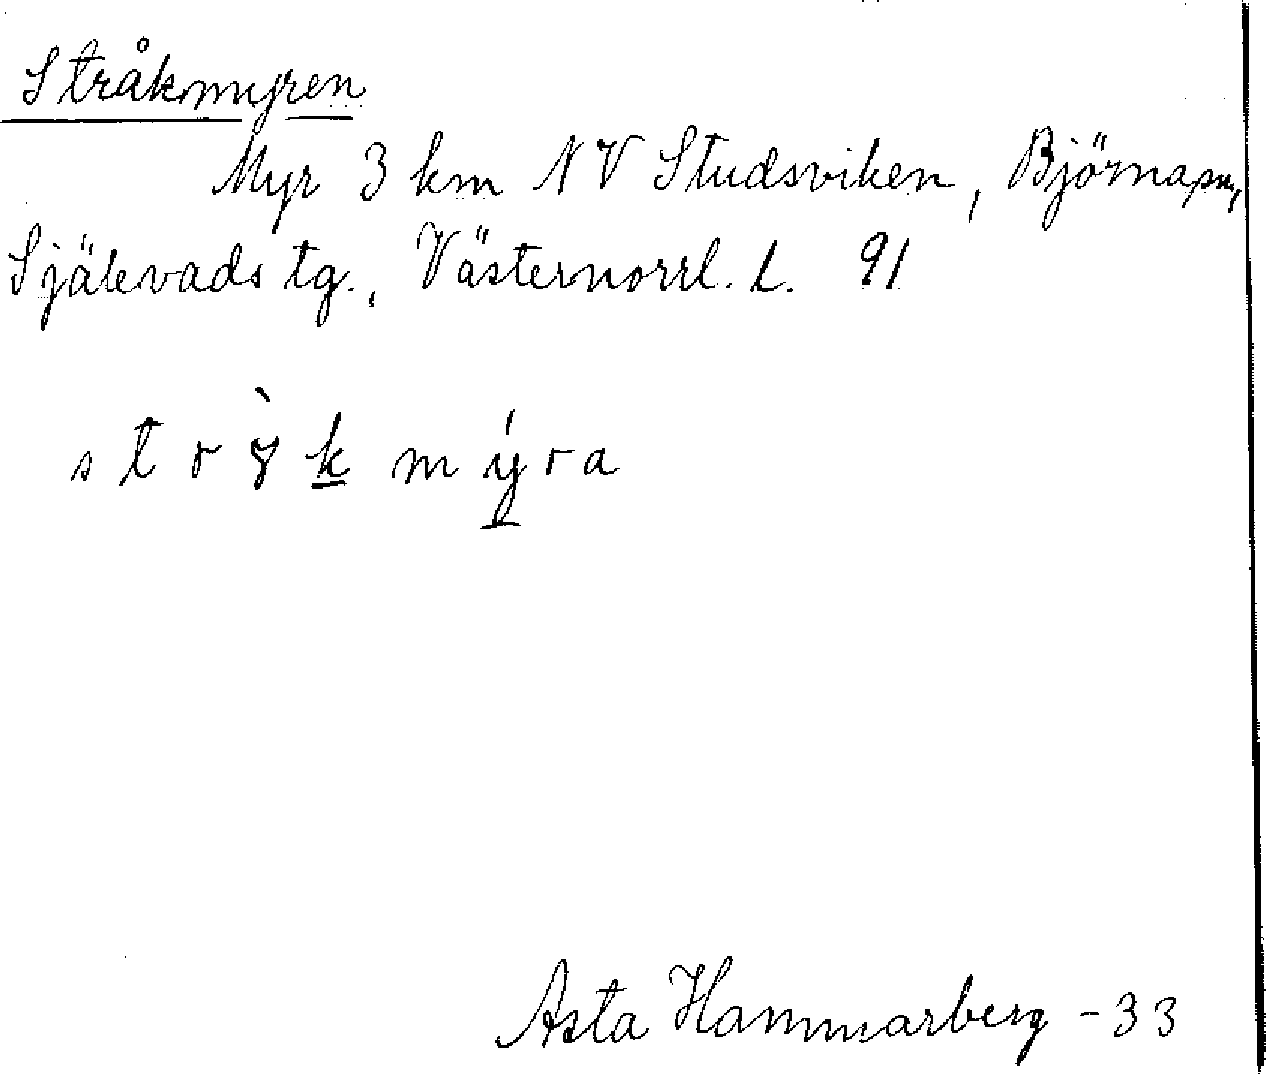 Stråkmyren
Myr 3 km NV Studsviken, Björna sn,
Själevads tg., Västernorrl. L. 91
m y r a
Asta Hammarberg -33